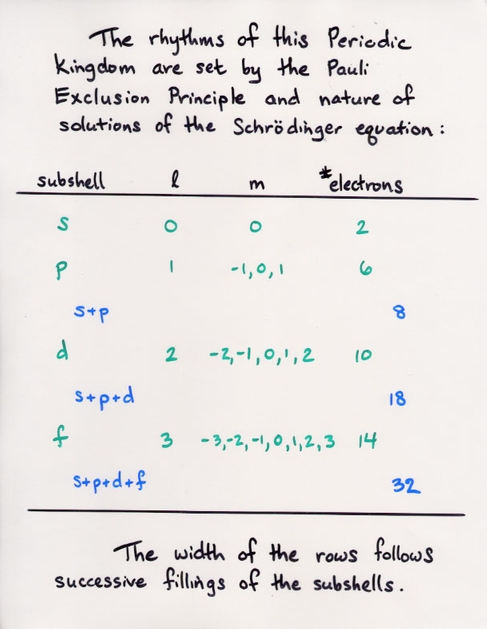 The rhythms of this Periodic
Kingdom are set by the Pauli
Exclusion Principle and nature of
solutions of the Schrödinger equation:
subshell l m #electrons
s 0 0 2
p 1 -1,0,1 6
s+p 8
d 2 -2,-1,0,1,2 10
s+p+d 18
f 3 -3,-2,-1,0,1,2,3 14
s+p+d+f 32
The width of the rows follows
successive fillings of the subshells.